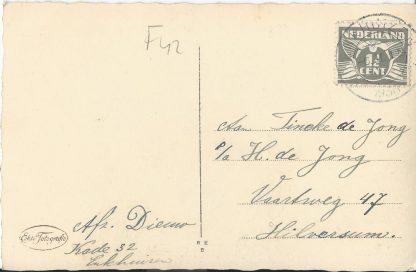 F42
NEDERLAND
1½
CENT
Aan Tineke de Jong
p/a H. de Jong
Vaartweg 47
Hilversum.
Afz. Dieuw
Kade 32
Enkhuizen
Echte Fotografie
R E
B